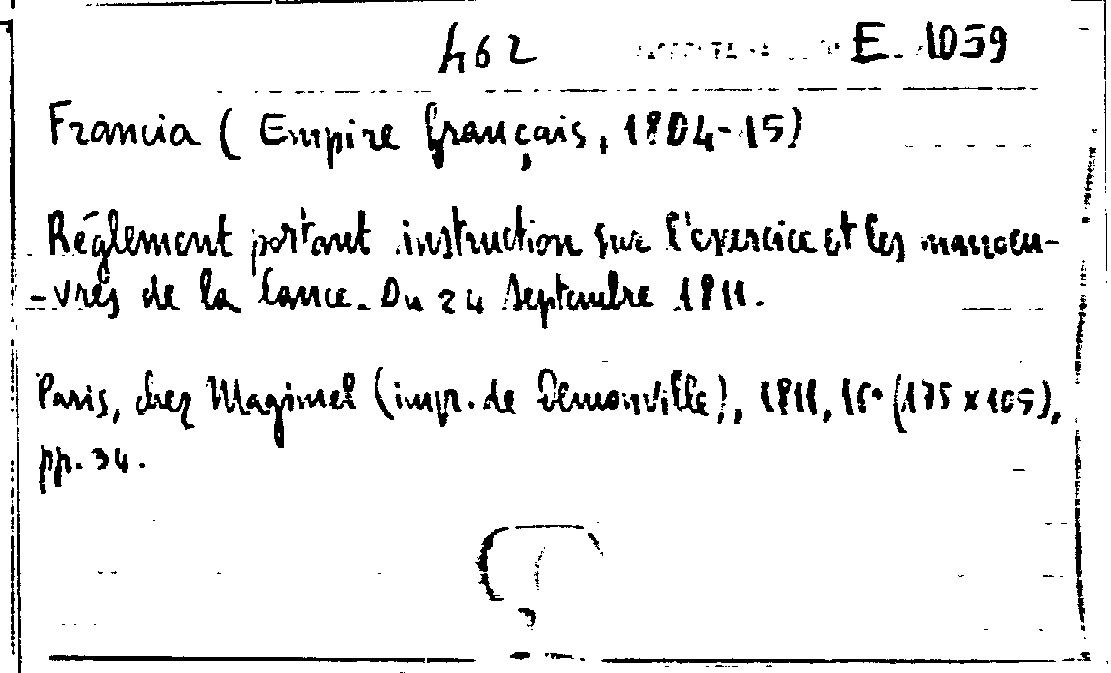 462 E 1059
Francia (Empire français, 1804-15)
Réglement portant instruction sur l'exercice et les manoeu-
-vres de la lance. Du 24 Septembre 1811.
Paris, chez Magimel (impr. de Demonville), 1811, 16° (175 x 105),
pp. 34.